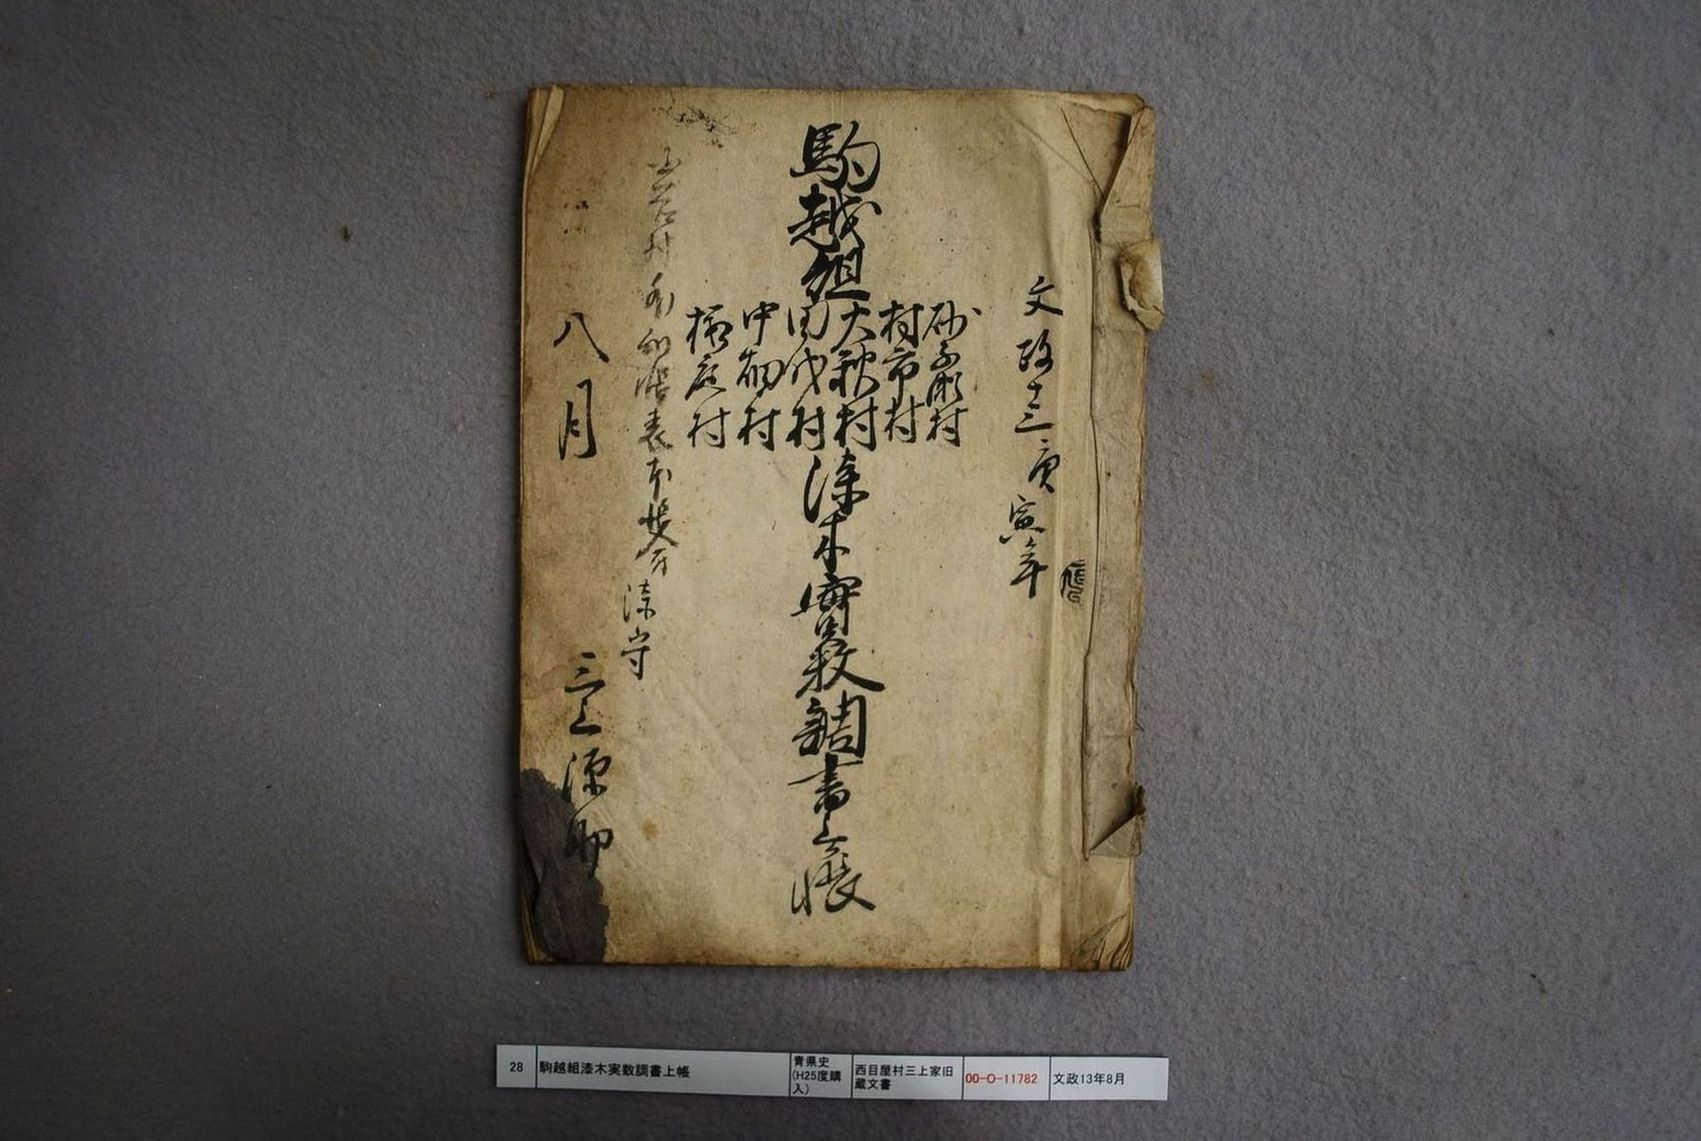 文政十三庚寅年
駒越組
砂子瀬村
村市村
大秋村
田代村
中畑村
桜庭村
漆木實数調書上帳
漆守
八月
三上源助
28
駒越組漆木実数調書上帳
青県史
(H25度購
入)
西目屋村三上家旧
蔵文書
00-O-11782
文政13年8月